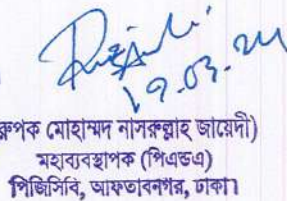 ১৭.০৩.২৪
রুপক মোহাম্মদ নাসরুল্লাহ জায়েদী)
মহাব্যবস্থাপক (পিএন্ডএ)
পিজিসিবি, আফতাবনগর, ঢাকা।